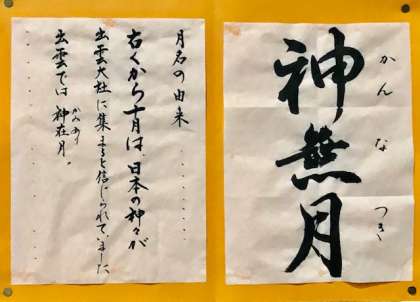 神無月
かんなつき
月名の由来
古くから十月は、日本の神々が
出雲大社に集まると信じられていました
出雲では 神在月。
かみあり